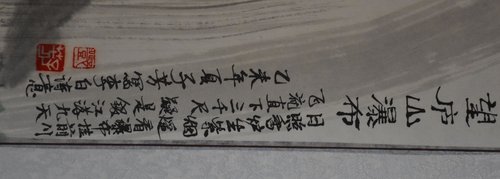 望庐山瀑布
日照香炉生紫烟遥看瀑布挂前川
飞流直下三千尺疑是银河落九天
乙未年夏子芳写李白诗意